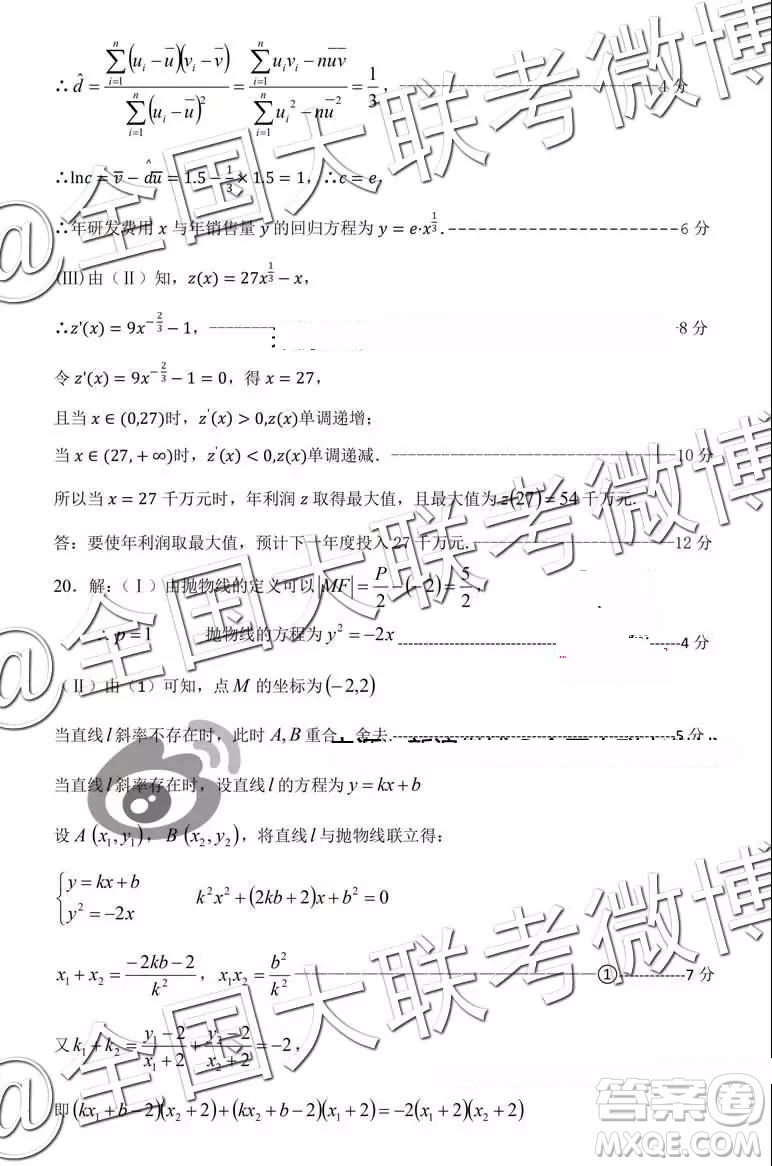 ∴ d̂ = ∑ⁿᵢ₌₁(uᵢ−u̅)(vᵢ−v̅) / ∑ⁿᵢ₌₁(uᵢ−u̅)² = (∑ⁿᵢ₌₁uᵢvᵢ−nu̅v̅) / (∑ⁿᵢ₌₁uᵢ²−nu̅²) = 1/3, 4 分
∴lnc = v̅ − d̂u̅ = 1.5 − 1/3 × 1.5 = 1, ∴c = e,
∴年研发费用 x 与年销售量 y 的回归方程为 y = e·x^(1/3). 6 分
(Ⅲ)由（Ⅱ）知，z(x) = 27x^(1/3) − x,
∴z'(x) = 9x^(−2/3) − 1, 8 分
令 z'(x) = 9x^(−2/3) − 1 = 0，得 x = 27,
且当 x ∈ (0,27)时，z'(x) > 0,z(x)单调递增;
当 x ∈ (27, +∞)时，z'(x) < 0,z(x)单调递减. 10 分
所以当 x = 27 千万元时，年利润 z 取得最大值，且最大值为 z(27) = 54 千万元.
答：要使年利润取最大值，预计下一年度投入 27 千万元. 12 分
20．解：（Ⅰ）由抛物线的定义可以 |MF| = P/2 − (−2) = 5/2,
∴ p = 1 抛物线的方程为 y² = −2x 4 分
（Ⅱ）由（1）可知，点 M 的坐标为 (−2,2)
当直线 l 斜率不存在时，此时 A, B 重合，舍去. 5 分
当直线 l 斜率存在时，设直线 l 的方程为 y = kx + b
设 A (x₁, y₁)，B (x₂, y₂)，将直线 l 与抛物线联立得：
{ y = kx + b
y² = −2x k²x² + (2kb + 2)x + b² = 0
x₁ + x₂ = (−2kb − 2)/k²，x₁x₂ = b²/k² ① 7 分
又 k₁ + k₂ = (y₁ − 2)/(x₁ + 2) + (y₂ − 2)/(x₂ + 2) = −2,
即 (kx₁ + b − 2)(x₂ + 2) + (kx₂ + b − 2)(x₁ + 2) = −2(x₁ + 2)(x₂ + 2)
@全国大联考微博
@全国大联考微博
@全国大联考微博
答案圈
MXQE.COM